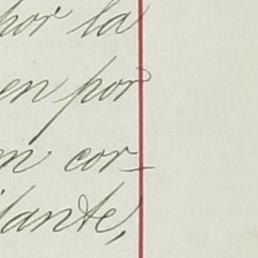 por la
en por
en cor-
lante,